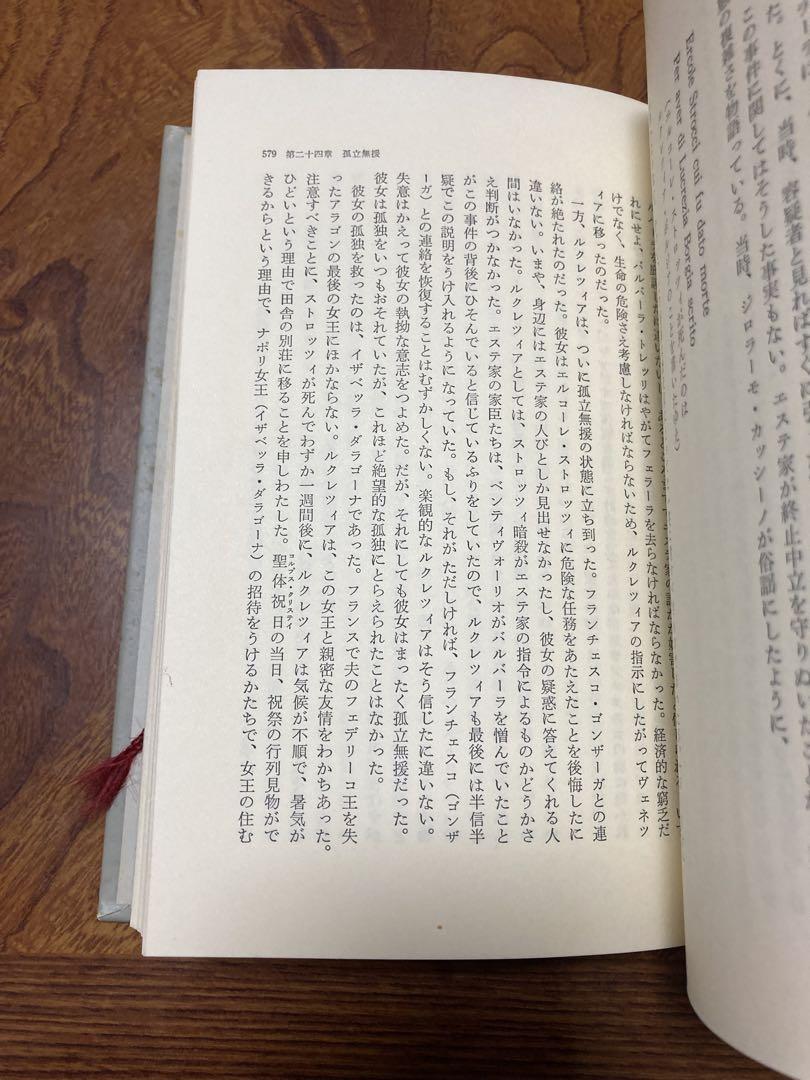 た。とくに、当時、容疑者と見ればすぐ
この事件に関してはそうした事実もない。エステ家が終止中立を守りぬいた
の複雑さを物語っている。当時、ジロラーモ・カッシーノが俗謡にしたように、
Ercole Strocci cui fu dato morte
Per aver di Lucrezia Borgia scritto
579 第二十四章 孤立無援
れにせよ、バルバーラ・トレッリはやがてフェラーラを去らなければならなかった。経済的な窮乏だ
けでなく、生命の危険さえ考慮しなければならないため、ルクレツィアの指示にしたがってヴェネツ
ィアに移ったのだった。
一方、ルクレツィアは、ついに孤立無援の状態に立ち到った。フランチェスコ・ゴンザーガとの連
絡が絶たれたのだった。彼女はエルコーレ・ストロッツィに危険な任務をあたえたことを後悔したに
違いない。いまや、身辺にはエステ家の人びとしか見出せなかったし、彼女の疑惑に答えてくれる人
間はいなかった。ルクレツィアとしては、ストロッツィ暗殺がエステ家の指令によるものかどうかさ
え判断がつかなかった。エステ家の家臣たちは、ベンティヴォーリオがバルバーラを憎んでいたこと
がこの事件の背後にひそんでいると信じているふりをしていたので、ルクレツィアも最後には半信半
疑でこの説明をうけ入れるようになっていた。もし、それがただしければ、フランチェスコ（ゴンザ
ーガ）との連絡を恢復することはむずかしくない。楽観的なルクレツィアはそう信じたに違いない。
失意はかえって彼女の執拗な意志をつよめた。だが、それにしても彼女はまったく孤立無援だった。
彼女は孤独をいつもおそれていたが、これほど絶望的な孤独にとらえられたことはなかった。
彼女の孤独を救ったのは、イザベッラ・ダラゴーナであった。フランスで夫のフェデリーコ王を失
ったアラゴンの最後の女王にほかならない。ルクレツィアは、この女王と親密な友情をわかちあった。
注意すべきことに、ストロッツィが死んでわずか一週間後に、ルクレツィアは気候が不順で、暑気が
ひどいという理由で田舎の別荘に移ることを申しわたした。聖体祝日の当日、祝祭の行列見物がで
コルプス・クリスティ
きるからという理由で、ナポリ女王（イザベッラ・ダラゴーナ）の招待をうけるかたちで、女王の住む